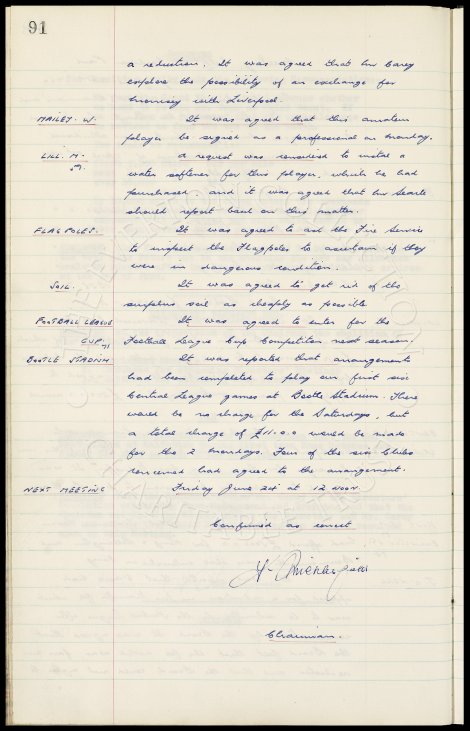 91
a reduction. It was agreed that Mr Carey
explore the possibility of an exchange for
with Liverpool.
MAILEY. W. It was agreed that this amateur
player be signed as a professional on Monday.
LILL. M. A request was considered to instal a
water softener for this player, which he had
purchased, and it was agreed that Mr Searle
should report back on this matter.
FLAGPOLES. It was agreed to ask the Fire Service
to inspect the Flagpoles to ascertain if they
were in dangerous condition.
SOIL. It was agreed to get rid of the
surplus soil as cheaply as possible
FOOTBALL LEAGUE It was agreed to enter for the
CUP. Football League Cup Competition next season.
BOOTLE STADIUM It was reported that arrangements
had been completed to play our first six
Central League games at Bootle Stadium. There
would be no charge for the Saturdays, but
a total charge of £11.0.0 would be made
for the 2 Mondays. Four of the six Clubs
concerned had agreed to the arrangement.
NEXT MEETING Friday June 24th at 12 noon.
Confirmed as correct
Chairman.
EVERTON COLLECTION
CHARITABLE TRUST